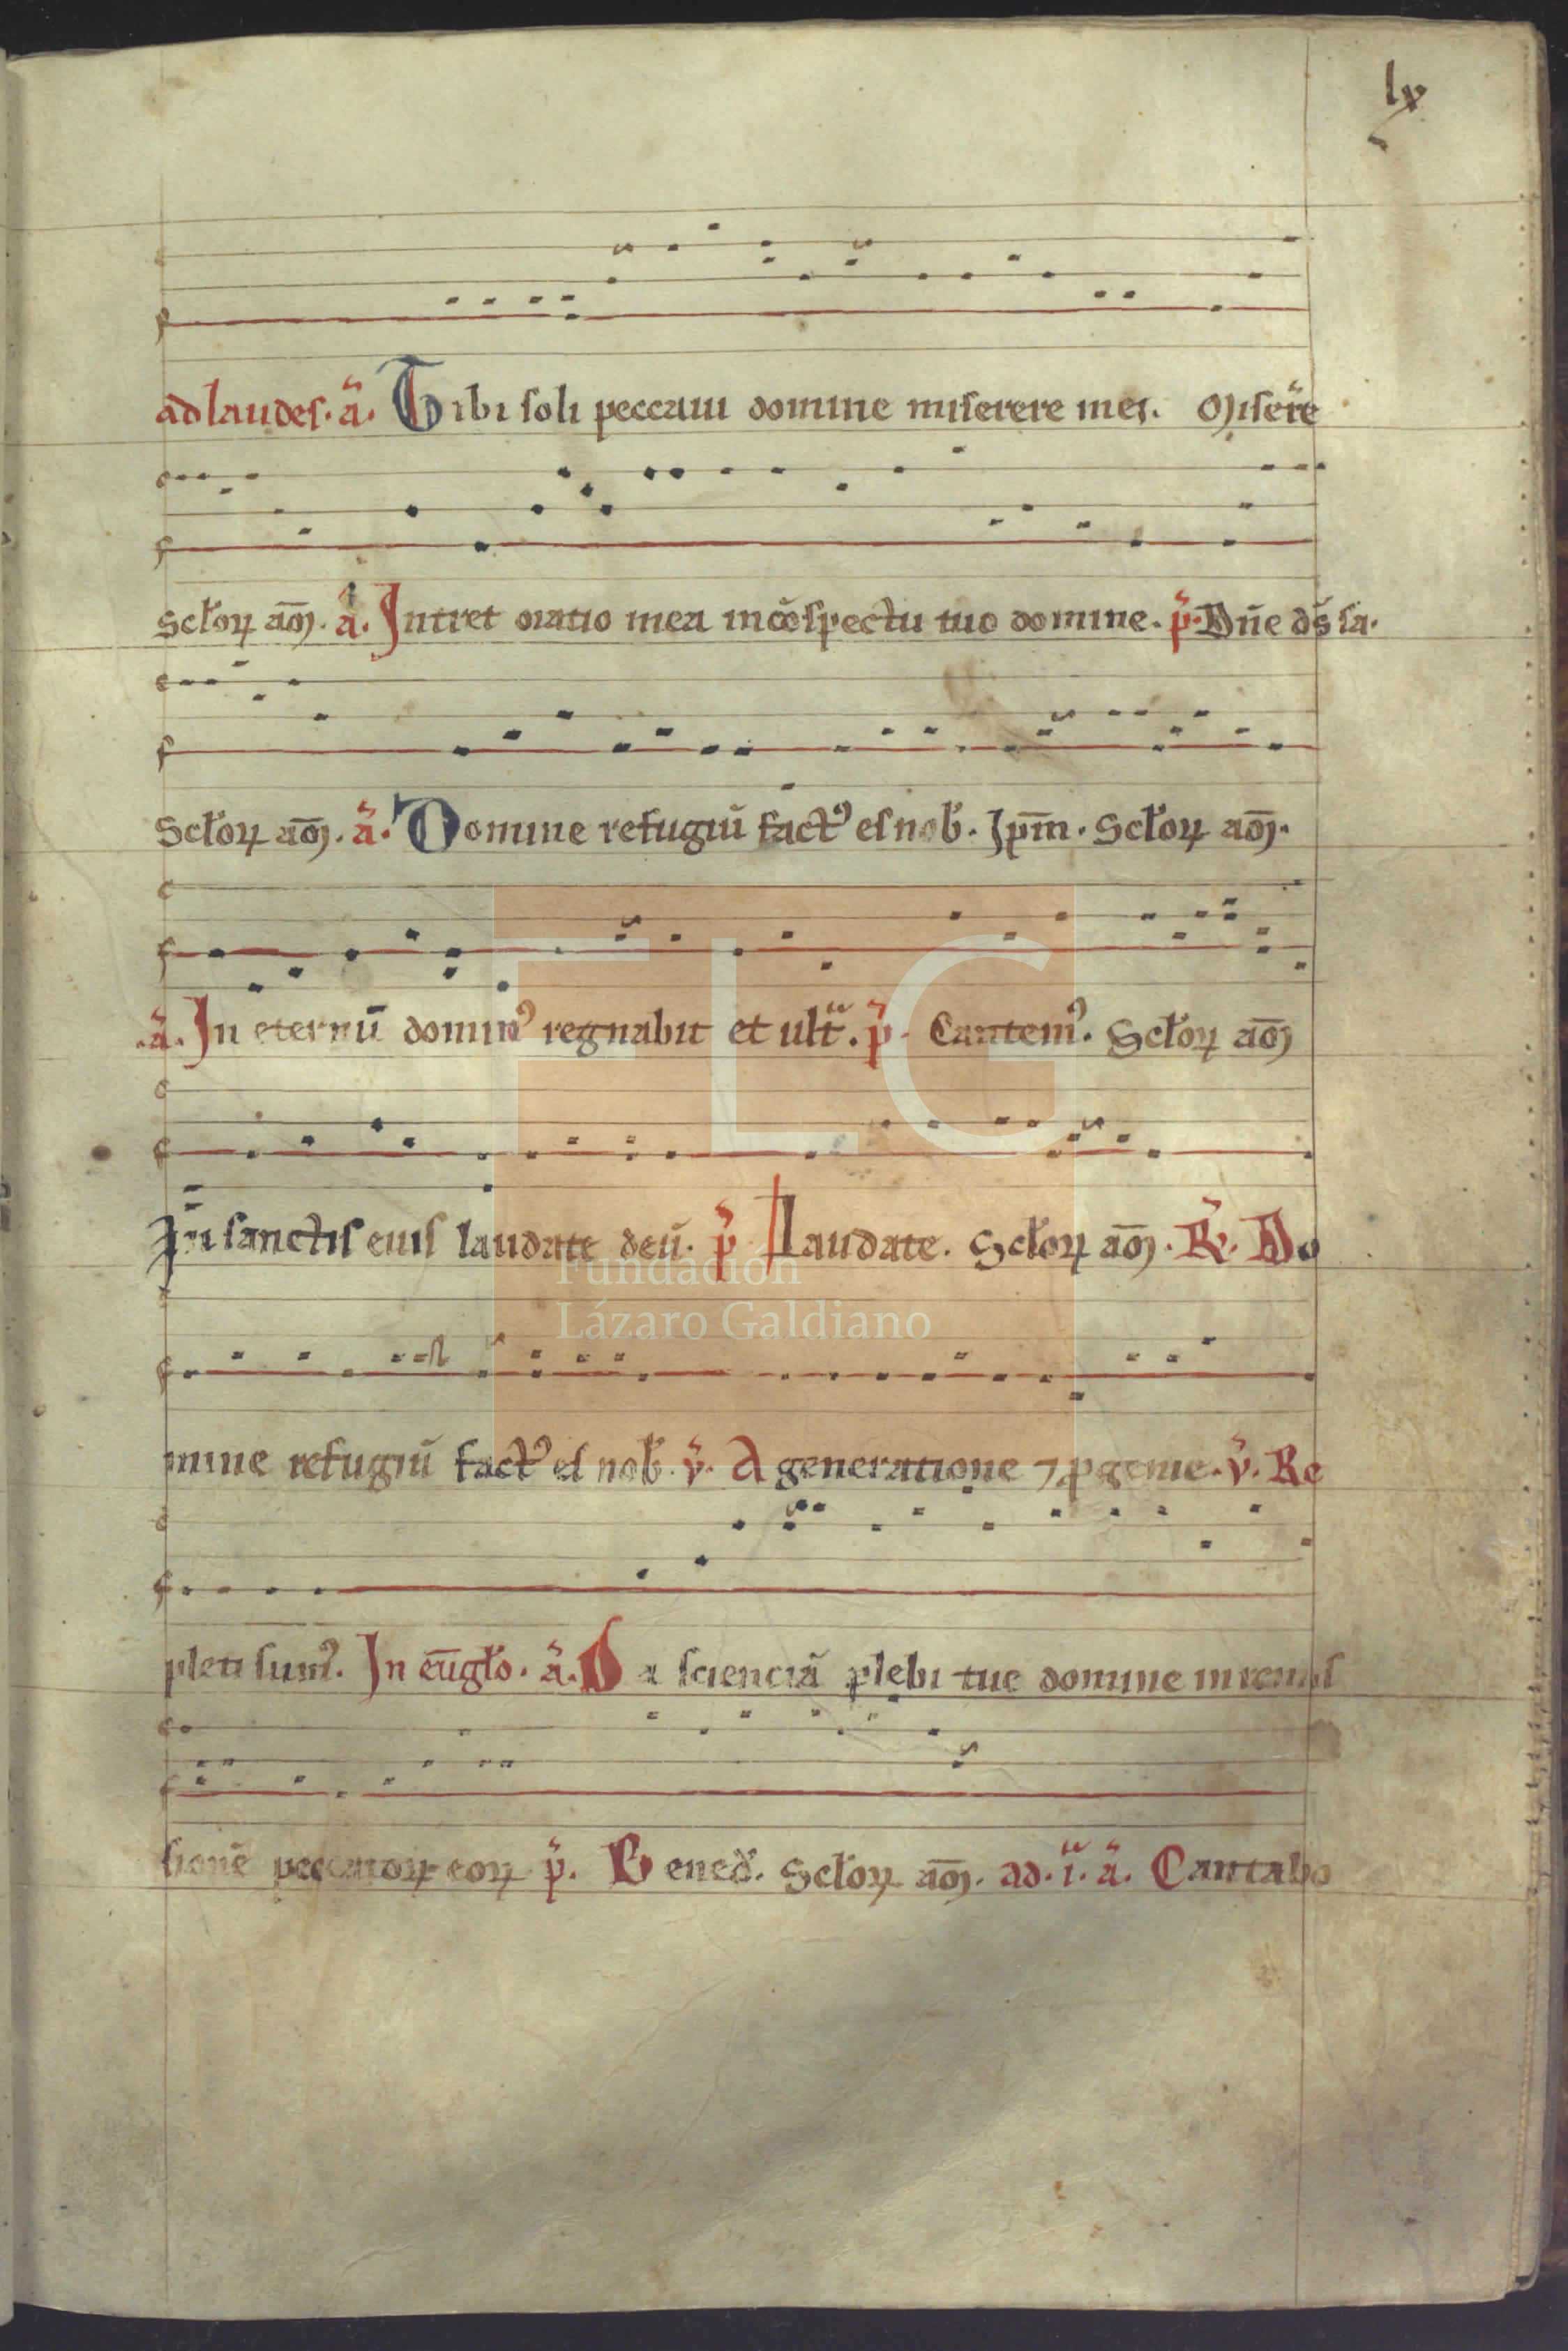 lx
ad laudes. a̅. Tibi soli peccaui domine miserere mei. Misere̅
Sctoꝝ am̅. a̅. Intret oratio mea in co̅spectu tuo domine. p̅. Dn̅e ds̅ sa.
Sctoꝝ am̅. a̅. Domine refugiu̅ fact⁹ es nob̅. Ipm̅. Sctoꝝ am̅.
a̅. In eternu̅ domin⁹ regnabit et ult̅. p̅. Cantem⁹. Sctoꝝ am̅
In sanctis euis laudate deu̅. p̅ Laudate. Sctoꝝ am̅. R̅. Do
mine refugiu̅ fact⁹ es nob̅. v̅. A generatione ⁊ ꝓgenie. v̅. Re
pleti sum⁹. In eu̅glo. a̅. Da sciencia̅ plebi tue domine in remis
sione̅ peccatoꝝ eoꝝ p̅. Bened̅. Sctoꝝ am̅. ad. i̅. a̅. Cantabo
FLG
Fundación
Lázaro Galdiano